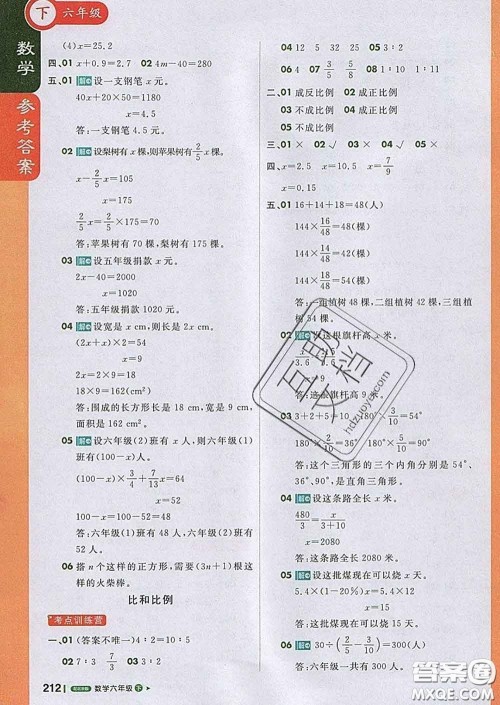 下 六年级
数学
参考答案
(4)x=25.2
四、01 x+0.9=2.7 02 4m-40=280
五、01 解 设一支钢笔 x 元。
40x+20×50=1180
x=4.5
答:一支钢笔 4.5 元。
02 解 设梨树有 x 棵,则苹果树有 2/5 x 棵。
x-2/5 x=105
x=175
2/5 x=2/5×175=70
答:苹果树有 70 棵,梨树有 175 棵。
03 解 设五年级捐款 x 元。
2x-40=2000
x=1020
答:五年级捐款 1020 元。
04 解 设宽是 x cm,则长是 2x cm。
(2x+x)×2=54
x=9
2x=2×9=18
18×9=162(cm²)
答:围成的长方形长是 18 cm,宽是 9 cm,
面积是 162 cm²。
05 解 设六年级(2)班有 x 人,则六年级(1)班
有(100-x)人。
(100-x)×3/4+7/13 x=64
x=52
100-x=100-52=48
答:六年级(1)班有 48 人,六年级(2)班有
52 人。
06 搭 n 个这样的正方形,需要(3n+1)根这
样的火柴棒。
比和比例
考点训练营
一、01 (答案不唯一)4:2=10:5
02 7:3 7:3 03 2:1
212 数学六年级 下
04 12 5 32 25
06 4 7/3 5/8 08 1:10 1:11
二、01 成反比例 02 成正比例
03 不成比例 04 不成比例
三、01 × 02 ✓ 03 ✓ 04 ✓ 05 ×
四、x=2.5 x=10.5 x=7/9
x=0.15
五、01 16+14+18=48(人)
144×16/48=48(棵)
144×14/48=42(棵)
144×18/48=54(棵)
答:一组植树 48 棵,二组植树 42 棵,三组植
树 54 棵。
02 解 设这根旗杆高 x 米。
x=9.6
答:这根旗杆高 9.6 米。
03 3+2+5=10 180°×3/10=54°
180°×2/10=36° 180°×5/10=90°
答:这个三角形的三个内角分别是 54°、
36°、90°,是直角三角形。
04 解 设这条路全长 x 米。
480/3=x/(3+10)
x=2080
答:这条路全长 2080 米。
05 解 设这批煤现在可以烧 x 天。
5.4x(1-20%)=5.4×5
答:这批煤现在可以烧
06 解
答:六年级一共有 300 人。
互助文档
hdzuoye.com
答案圈
MXQE.COM